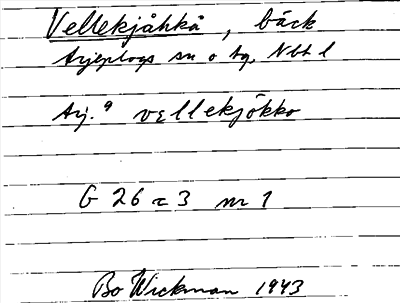 Vellekjåhkå, bäck
Arjeplogs sn o tg, Nbt l
Arj. 9 vellekjǒkko
G 26 c 3 nr 1
Bo Wickman 1943